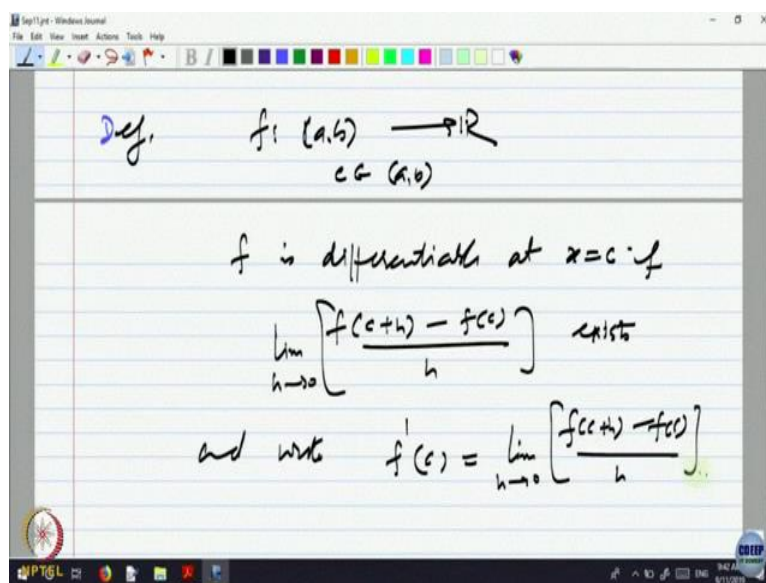 Sep11.jnt - Windows Journal
File Edit View Insert Actions Tools Help
B I
Def. f: (a,b) → ℝ
c ∈ (a,b)
f is differentiable at x=c if
lim h→0 [f(c+h) - f(c) / h] exists
and write f'(c) = lim h→0 [f(c+h) - f(c) / h]
NPTEL
CDEEP
ENG
9/11/2019